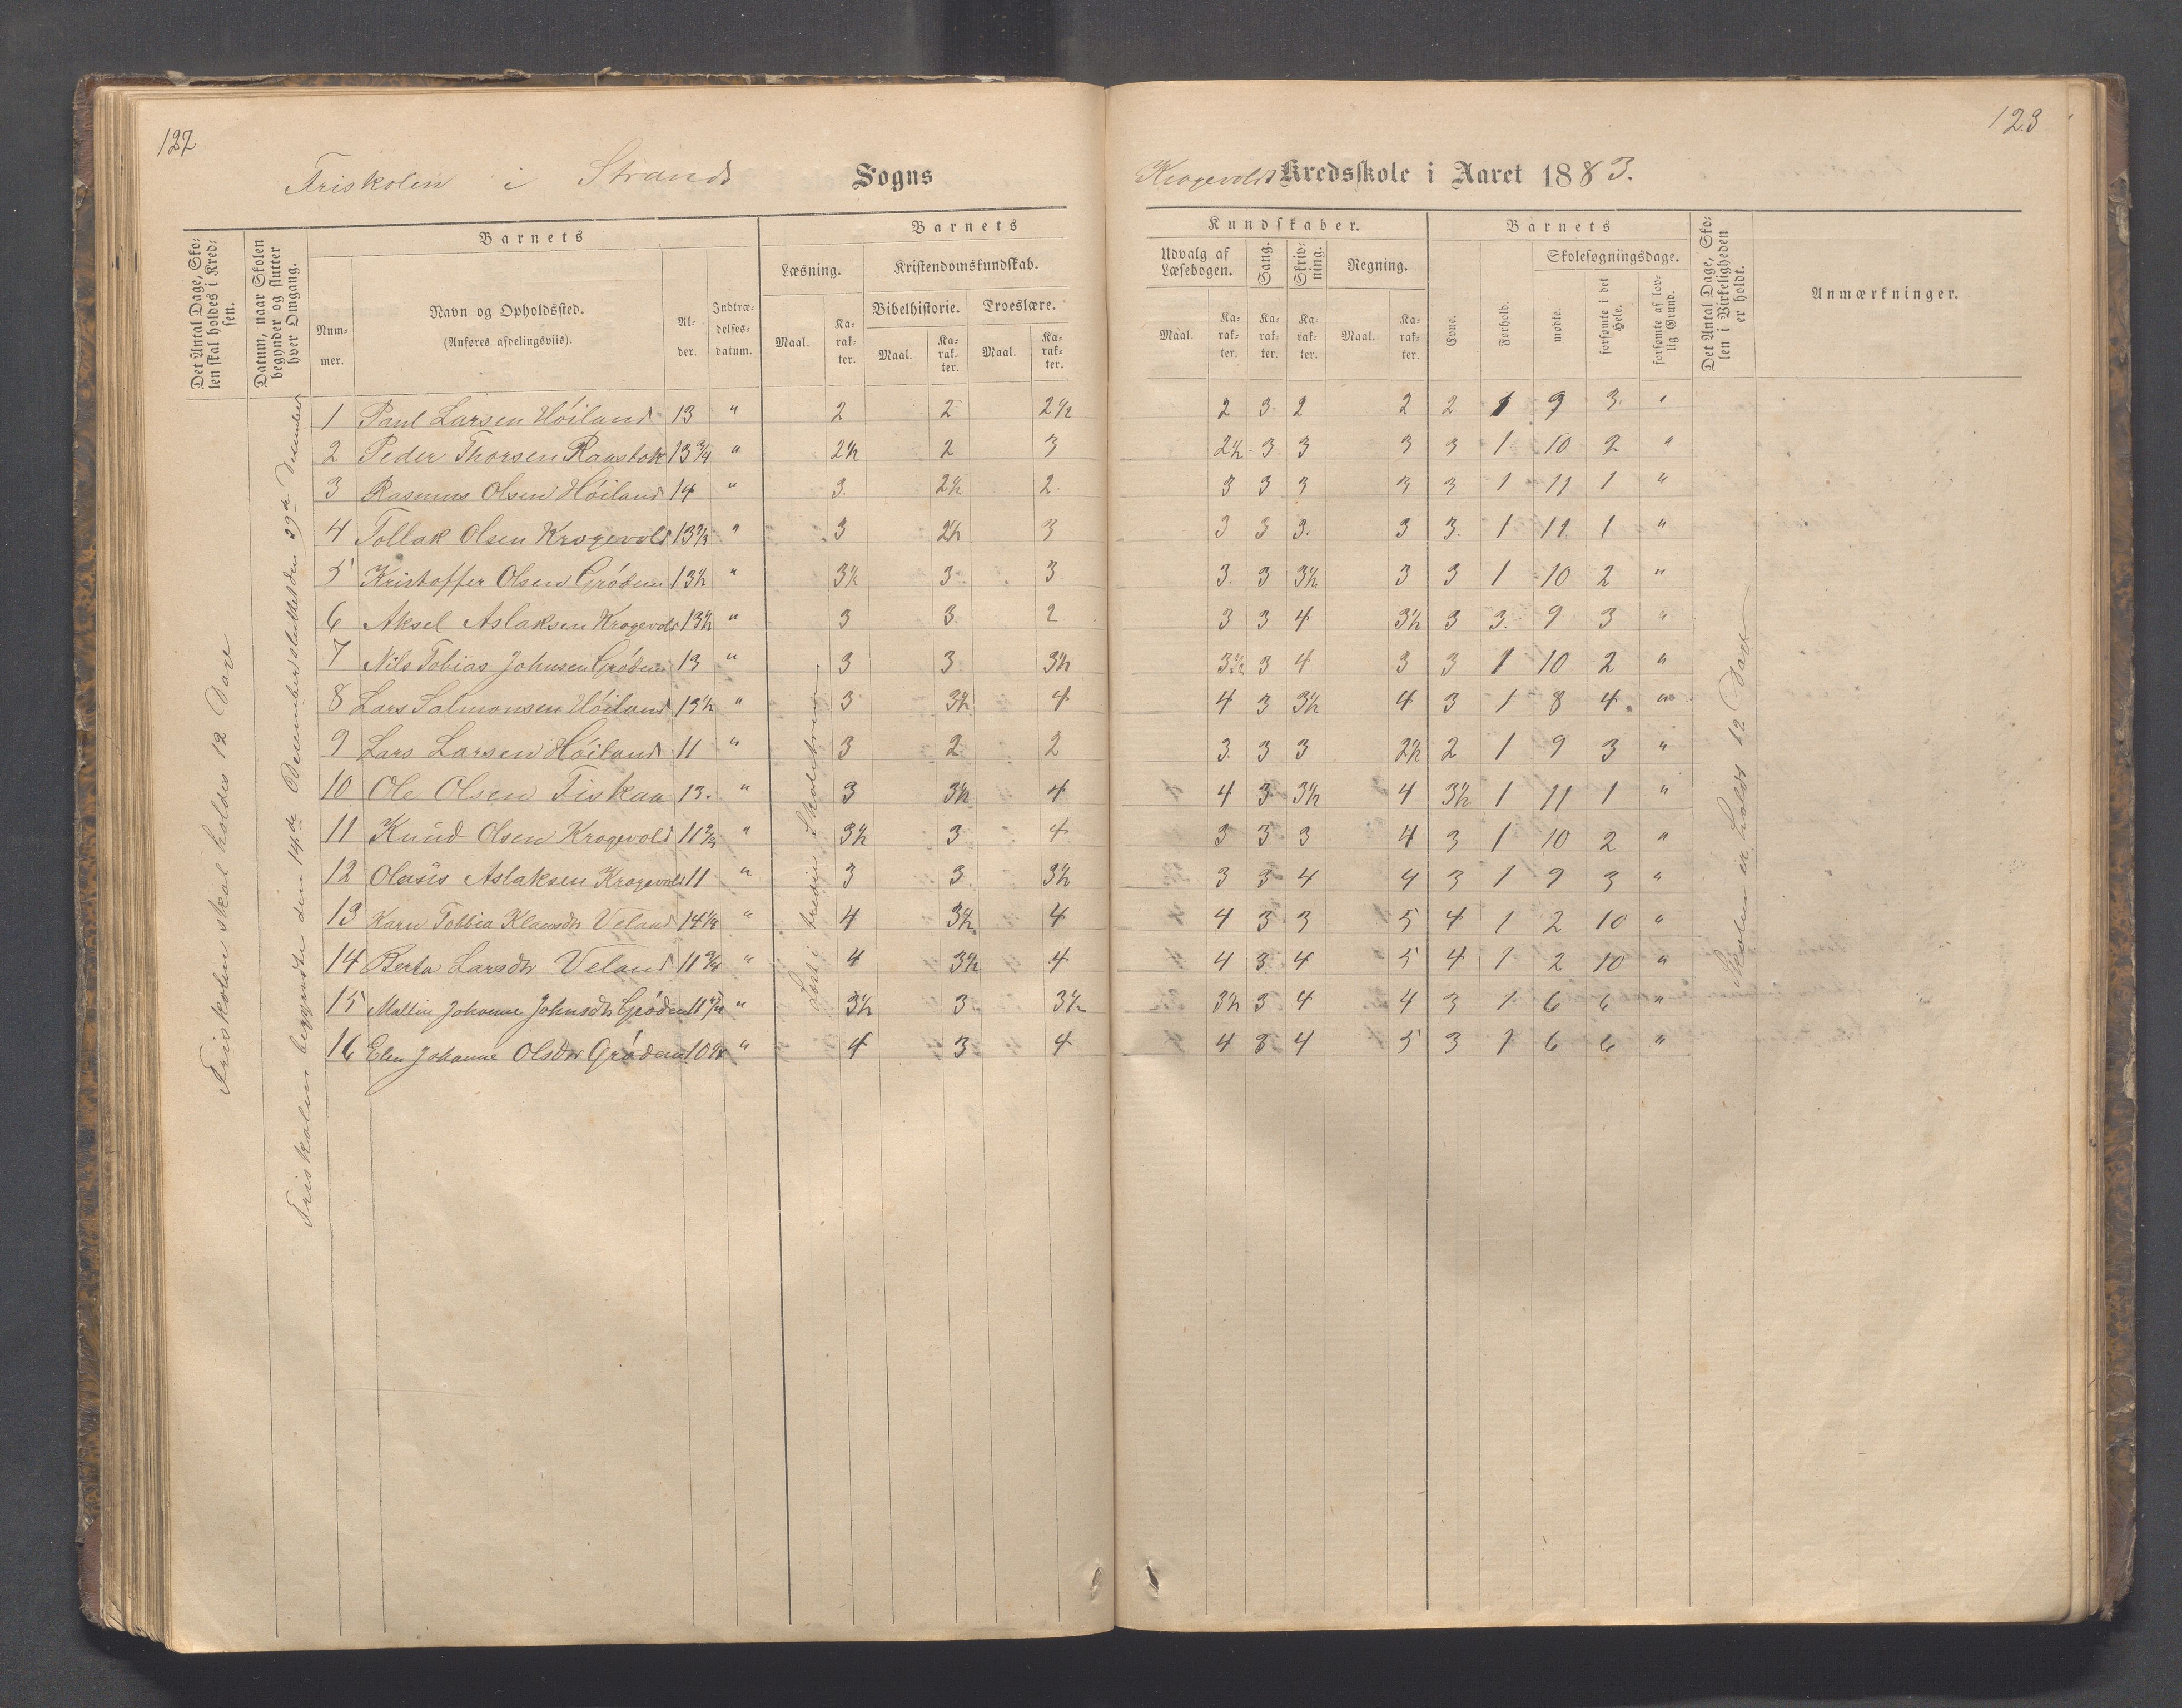 127
123
Friskolen i Strands Sogns
Krogevolds Kredsskole i Aaret 1883.
Det Antal Dage, Skolen skal holdes i Kredsen.
Datum, naar Skolen begynder og slutter hver Omgang.
Barnets
Nummer.
Navn og Opholdssted.
(Anføres afdelingsviis).
Alder.
Indtrædelsesdatum.
Barnets
Læsning.
Kristendomskundskab.
Bibelhistorie.
Troeslære.
Maal. Karakter. Maal. Karakter. Maal. Karakter.
Kundskaber.
Udvalg af Læsebogen.
Sang.
Skrivning.
Regning.
Maal. Karakter. Karakter. Karakter. Maal. Karakter.
Barnets
Evne.
Forhold.
Skolesøgningsdage.
mødte.
forsømte i det Hele.
forsømte af lovlig Grund.
Det Antal Dage, Skolen i Virkeligheden er holdt.
Anmærkninger.
Friskolen skal holdes 12 Dage
Friskolen begyndte den 14de December sluttet den 29de December
Læst i tredje Skoletrin
Skolen er holdt 12 Dage
1 Paul Larsen Höiland 13 " 2 2 2½ 2 3 2 2 2 1 9 3 "
2 Peder Thorsen Ravstok 13¾ " 2½ 2 3 2½ 3 3 3 3 1 10 2 "
3 Rasmus Olsen Höiland 14 " 3 2½ 2 3 3 3 3 3 1 11 1 "
4 Tollak Olsen Krogevold 13½ " 3 2½ 3 3 3 3 3 3 1 11 1 "
5 Kristoffer Olsen Grödem 13½ " 3½ 3 3 3 3 3½ 3 3 1 10 2 "
6 Aksel Aslaksen Krogevold 13½ " 3 3 2 3 3 4 3½ 3 3 9 3 "
7 Nils Tobias Johnsen Grödem 13 " 3 3 3½ 3½ 3 4 3 3 1 10 2 "
8 Lars Salmonsen Höiland 13½ " 3 3½ 4 4 3 3½ 4 3 1 8 4 "
9 Lars Larsen Höiland 11 " 3 2 2 3 3 3 2½ 2 1 9 3 "
10 Ole Olsen Fiskaa 13 " 3 3½ 4 4 3 3½ 4 3½ 1 11 1 "
11 Knud Olsen Krogevold 11 " 3½ 3 4 3 3 3 4 3 1 10 2 "
12 Olaus Aslaksen Krogevold 11 " 3 3 3½ 3 3 4 4 3 1 9 3 "
13 Karn Tobbia Klausdr Veland 14¼ " 4 3½ 4 4 3 3 5 4 1 2 10 "
14 Berta Larsdr Veland 11¾ " 4 3½ 4 4 3 4 5 4 1 2 10 "
15 Mallin Johanne Johnsdr Grödem 11 " 3½ 3 3½ 3½ 3 4 4 3 1 6 6 "
16 Elen Johanne Olsdr Grödem 10 " 4 3 4 4 3 4 5 3 1 6 6 "